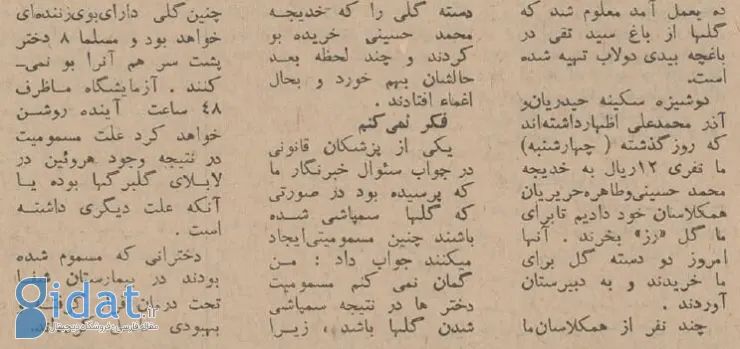 ده بعمل آمد معلوم شد که
گلها از باغ سید تقی در
باغچه بیدی دولاب تهیه شده
است.
دوشیزه سکینه حیدریان و
آذر محمدعلی اظهارداشته‌اند
که روز گذشته (چهارشنبه)
ما نفری ۱۲ریال به خدیجه
محمد حسینی وطاهره حریریان
همکلاسان خود دادیم تابرای
ما گل «رز» بخرند . آنها
امروز دو دسته گل برای
ما خریدند و به دبیرستان
آوردند .
چند نفر از همکلاسان‌ما
دسته گلی را که خدیجه
محمد حسینی خریده بو
کردند و چند لحظه بعد
حالشان بهم خورد و بحال
اغماء افتادند .
فکر نمی‌کنم
یکی از پزشکان قانونی
در جواب سئوال خبرنگار ما
که پرسیده بود در صورتی
که گلها سمپاشی شده
باشند چنین مسمومیتی‌ایجاد
میکنند جواب داد : من
گمان نمی کنم مسمومیت
دختر ها در نتیجه سمپاشی
شدن گلها باشد ، زیرا
چنین‌گلی دارای‌بوی‌زننده‌ای
خواهد بود و مسلما ۸ دختر
پشت سر هم آنرا بو نمی-
کنند . آزمایشگاه ماظرف
۴۸ ساعت آینده روشن
خواهد کرد علت مسمومیت
در نتیجه وجود هروئین در
لابلای گلبرگها بوده یا
آنکه علت دیگری داشته
است .
دخترانی که مسموم شده
بودند در بیمارستان
تحت
بهبودی
gidat.ir
مقاله فارسی، فروشگاه دیجیتال